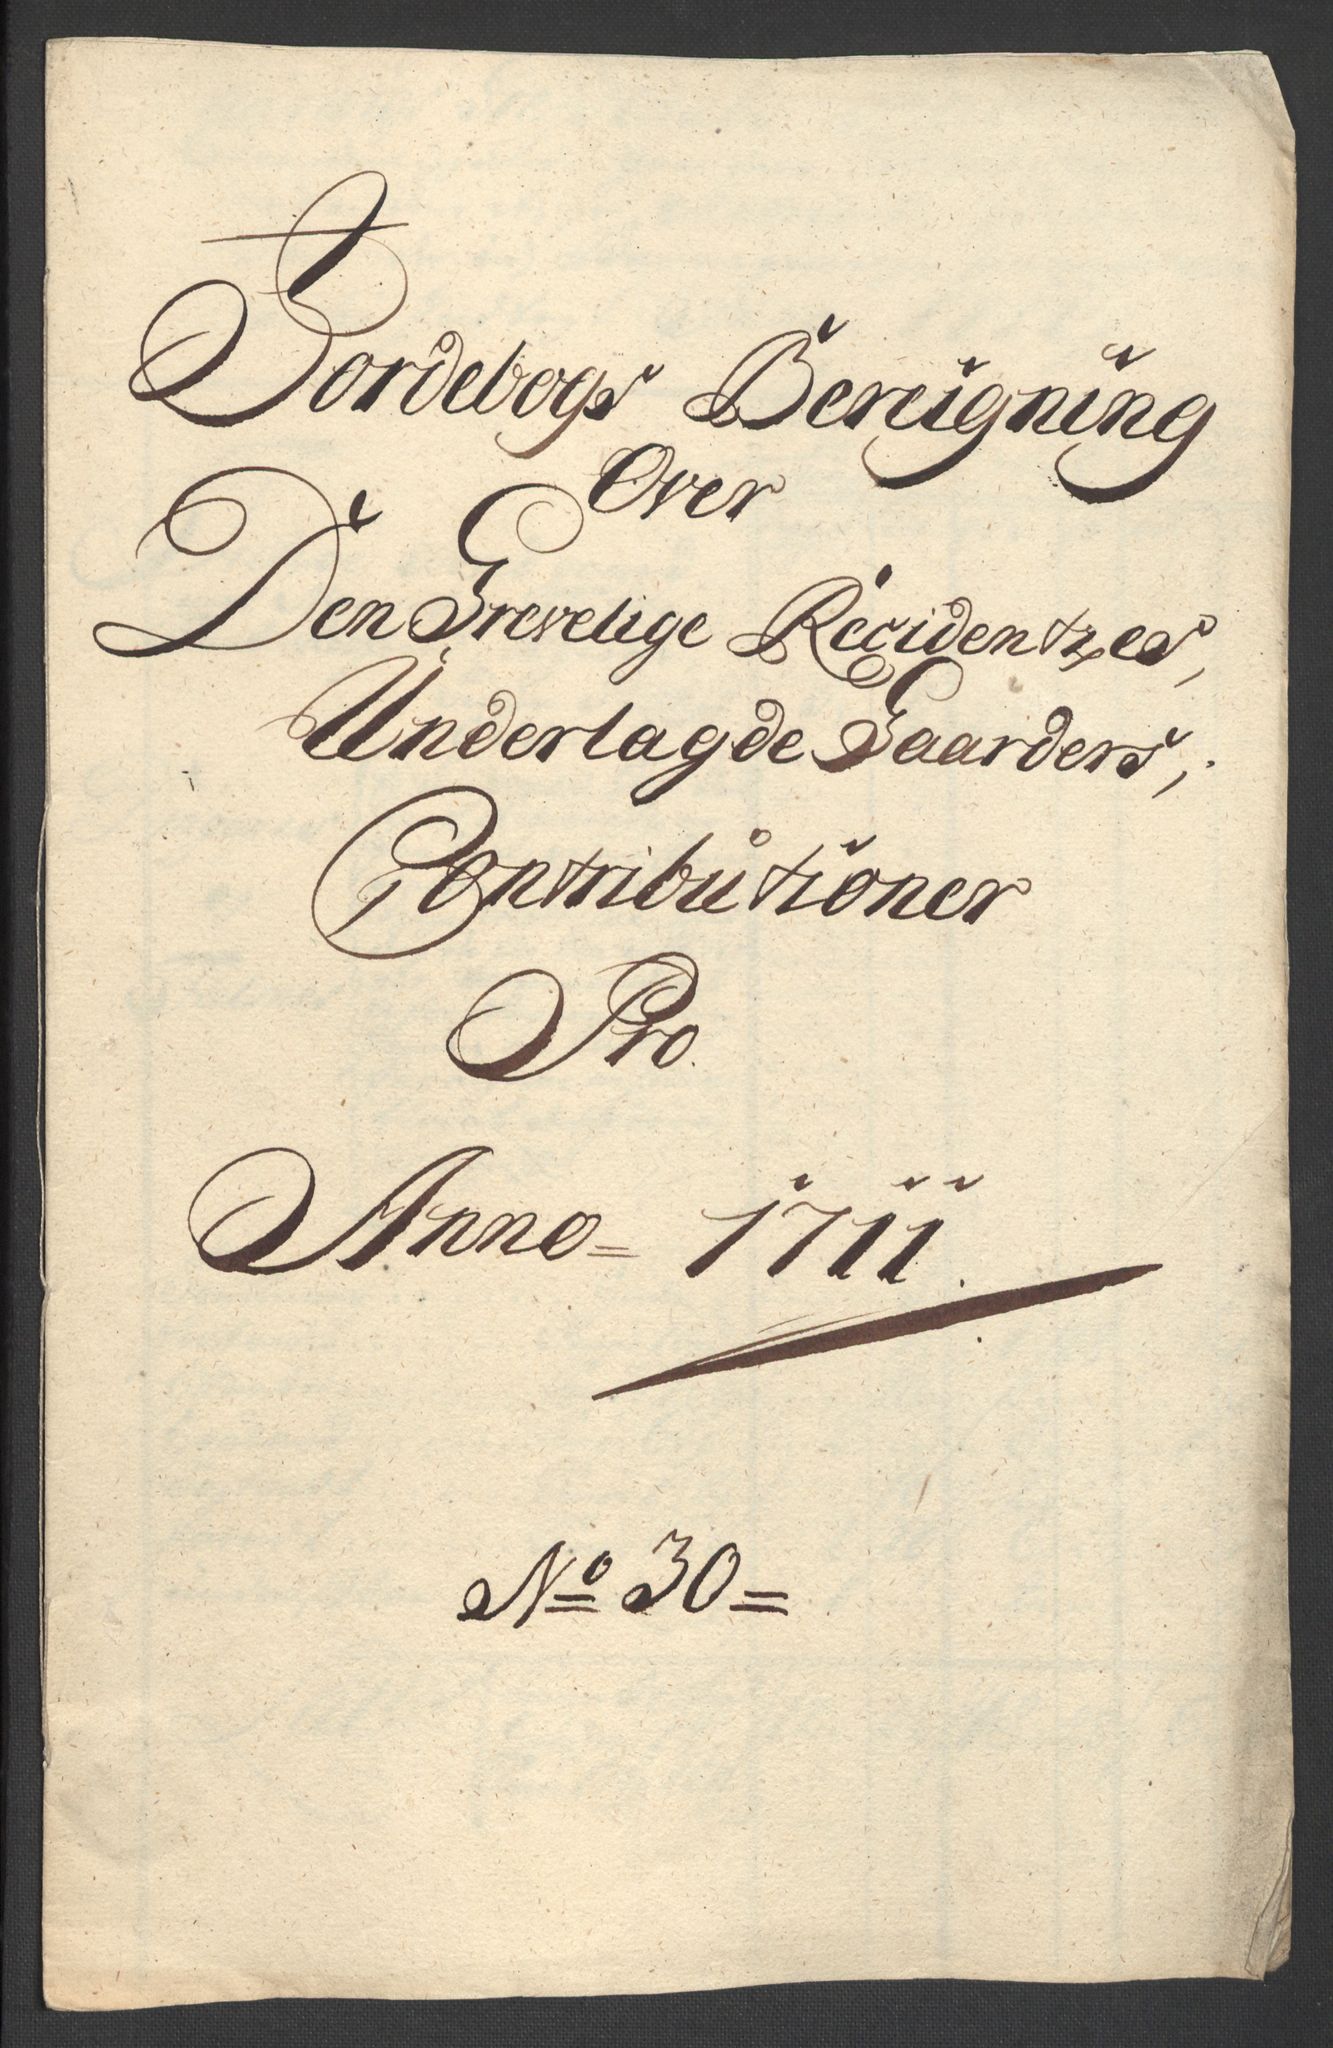 Jordebogs Bereigning
Over
Den Grevelige Recidentzes,
Underlagde Gaarders,
Contributioner
Pro.
Anno = 1711.
No 30 =